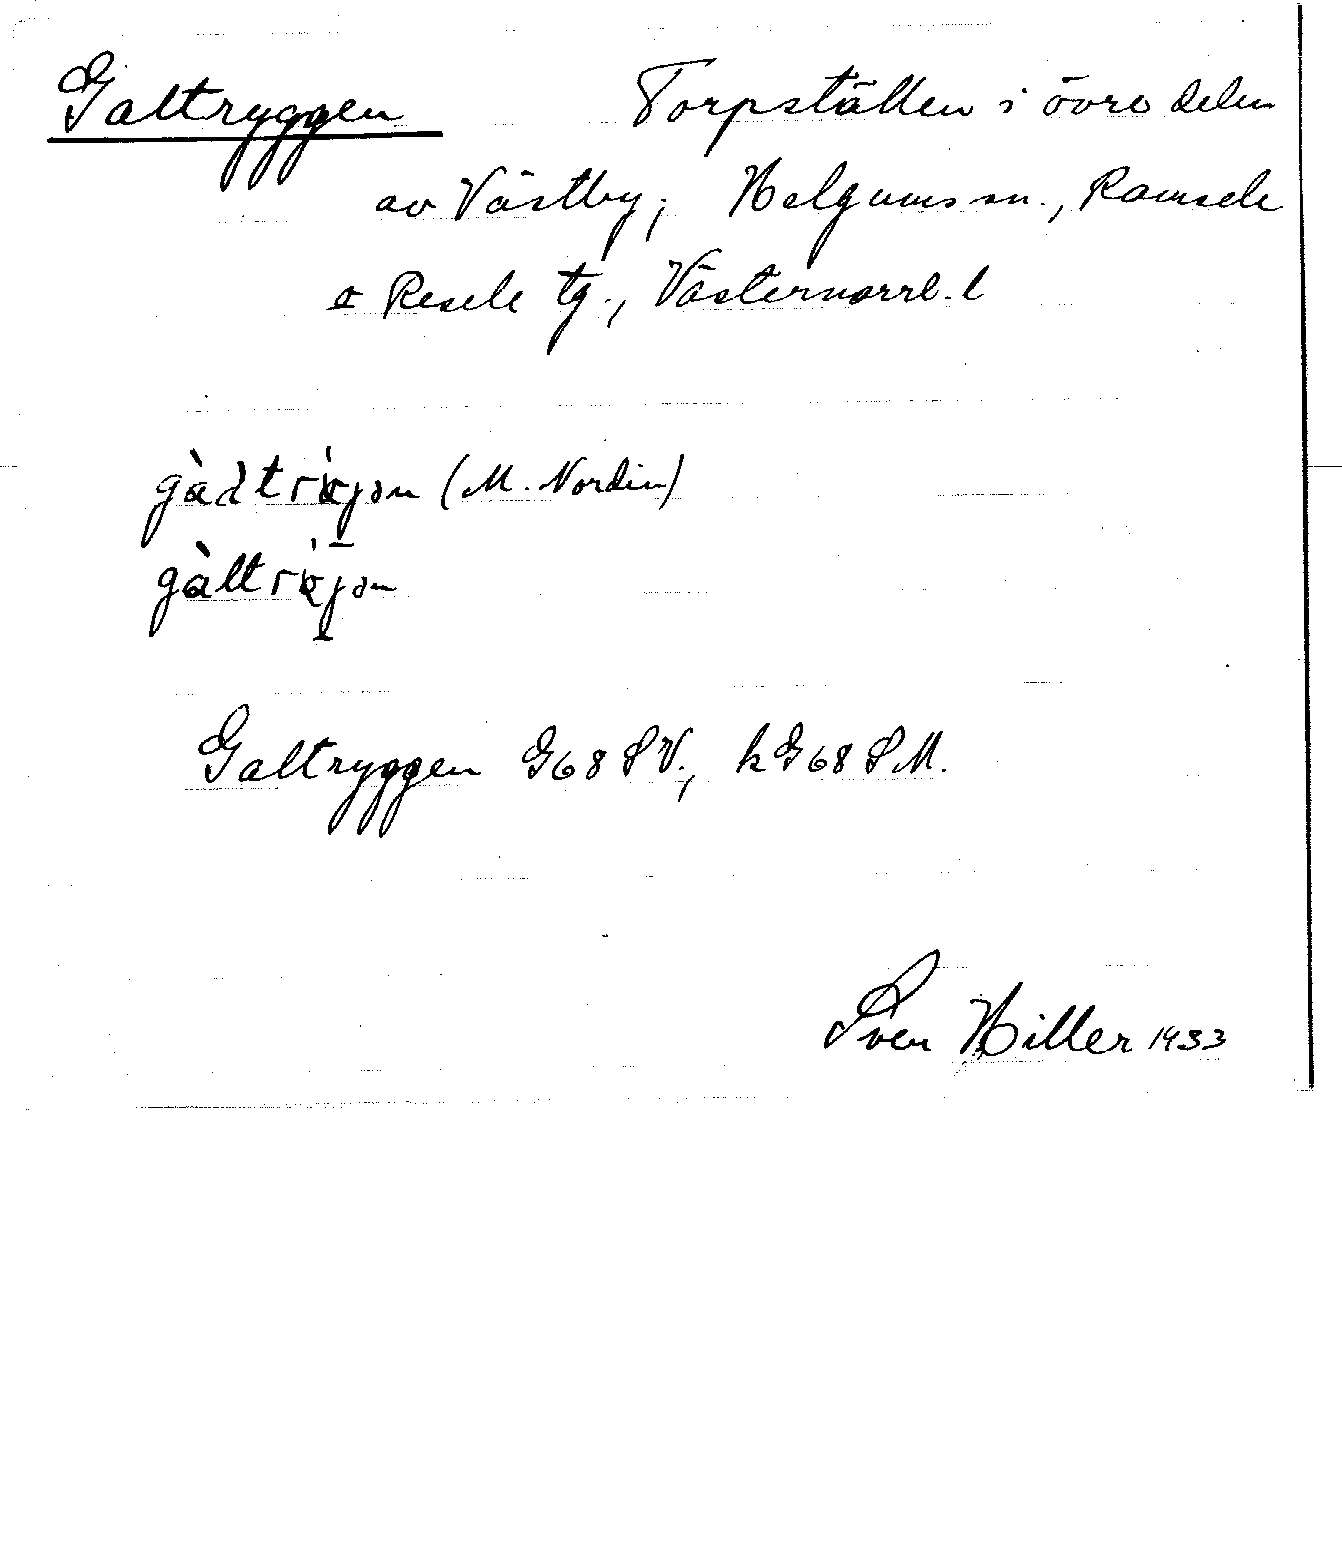 Galtryggen Torpställen i övre delen
av Västby, Helgums sn., Ramsele
o Resele tg., Västernorrl. l
(M. Nordin)
Galtryggen G68 SV., k G68 SM.
Sven Hiller 1933